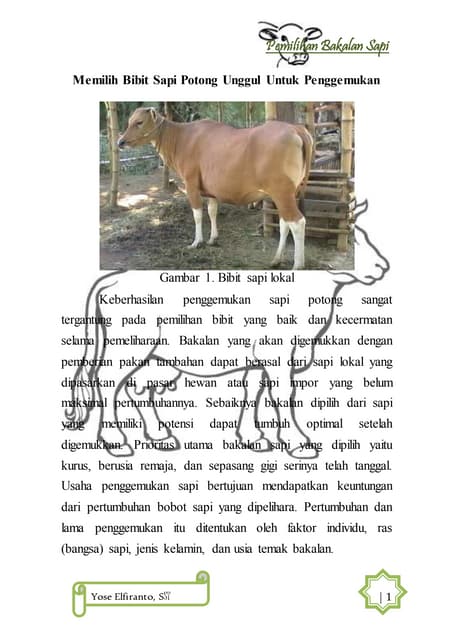 Pemilihan Bakalan Sapi
Memilih Bibit Sapi Potong Unggul Untuk Penggemukan
Gambar 1. Bibit sapi lokal
Keberhasilan penggemukan sapi potong sangat
tergantung pada pemilihan bibit yang baik dan kecermatan
selama pemeliharaan. Bakalan yang akan digemukkan dengan
pemberian pakan tambahan dapat berasal dari sapi lokal yang
dipasarkan di pasar hewan atau sapi impor yang belum
maksimal pertumbuhannya. Sebaiknya bakalan dipilih dari sapi
yang memiliki potensi dapat tumbuh optimal setelah
digemukkan. Prioritas utama bakalan sapi yang dipilih yaitu
kurus, berusia remaja, dan sepasang gigi serinya telah tanggal.
Usaha penggemukan sapi bertujuan mendapatkan keuntungan
dari pertumbuhan bobot sapi yang dipelihara. Pertumbuhan dan
lama penggemukan itu ditentukan oleh faktor individu, ras
(bangsa) sapi, jenis kelamin, dan usia temak bakalan.
Yose Elfiranto,
| 1